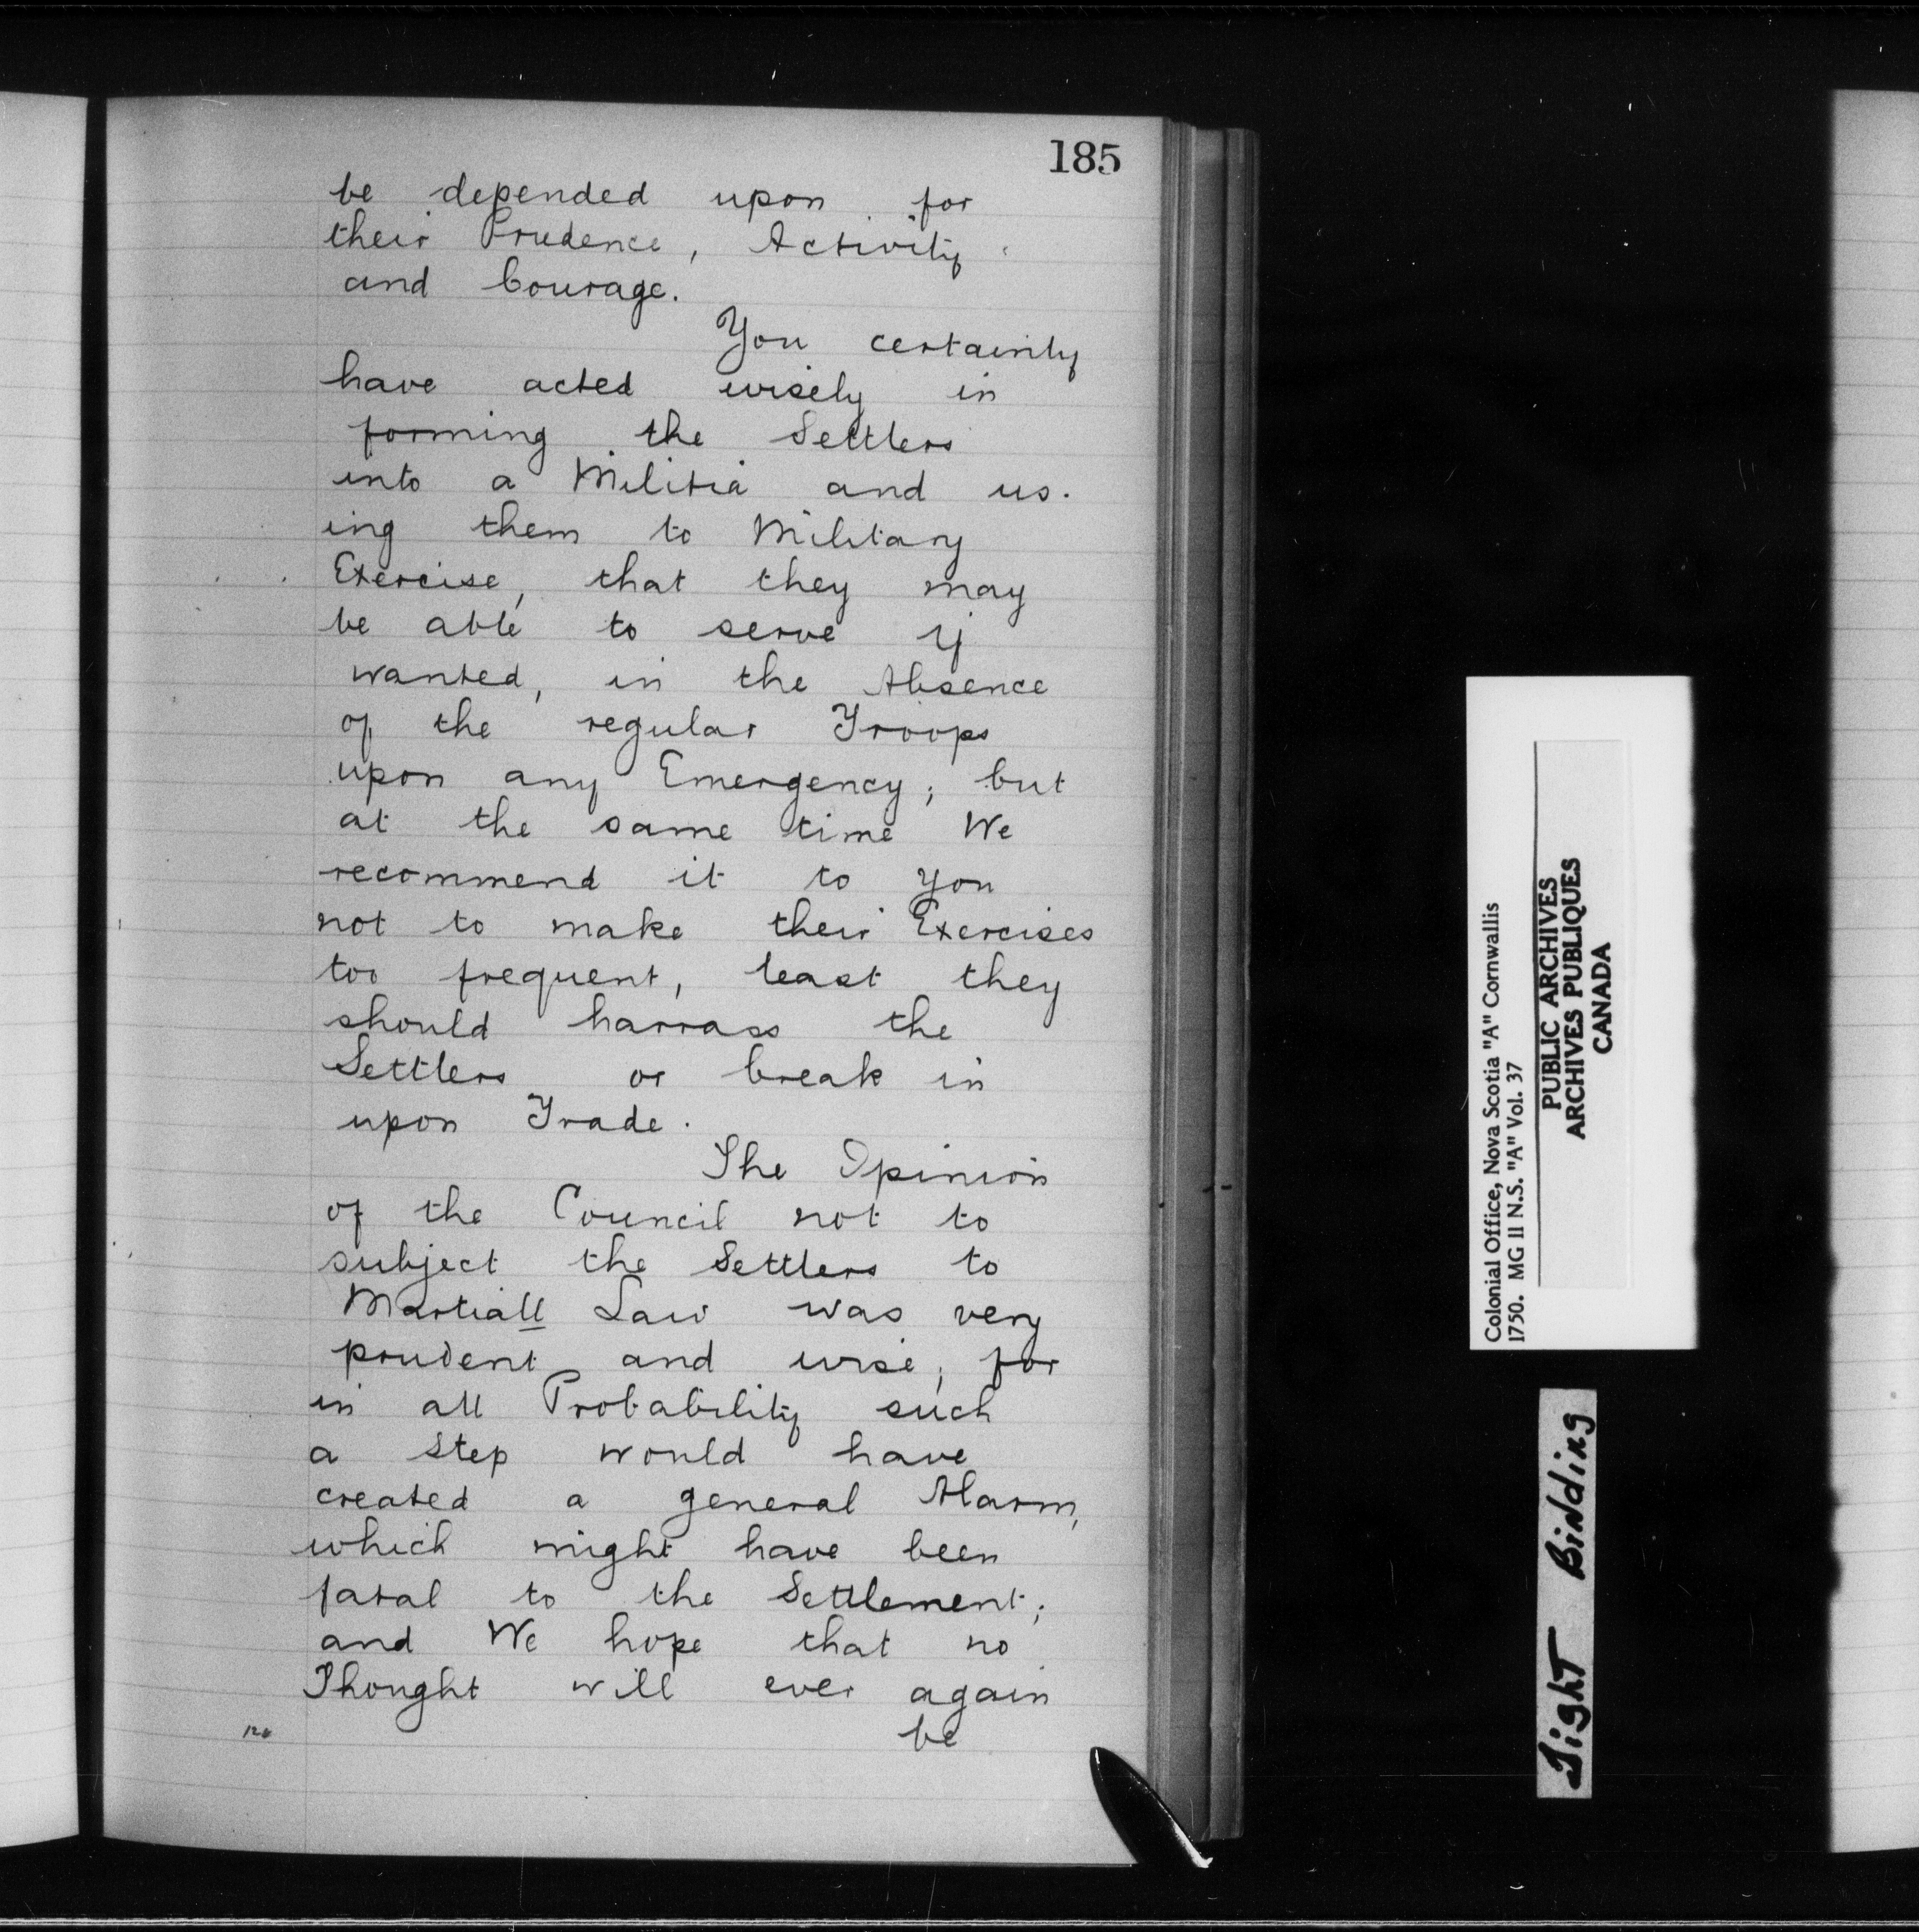 185
be depended upon for
their Prudence, Activity
and Courage.
You certainly
have acted wisely in
forming the Settlers
into a Militia and us-
ing them to Military
Exercise, that they may
be able to serve if
wanted, in the Absence
of the regular Troops
upon any Emergency; but
at the same time We
recommend it to you
not to make their Exercises
too frequent, least they
should harrass the
Settlers or break in
upon Trade.
The Opinion
of the Council not to
subject the Settlers to
Martiall Law was very
prudent and wise, for
in all Probability such
a step would have
created a general Alarm,
which might have been
fatal to the Settlement;
and We hope that no
Thought will ever again
be
Colonial Office, Nova Scotia "A" Cornwallis
1750. MG 11 N.S. "A" Vol. 37
PUBLIC ARCHIVES
ARCHIVES PUBLIQUES
CANADA
Tight Binding